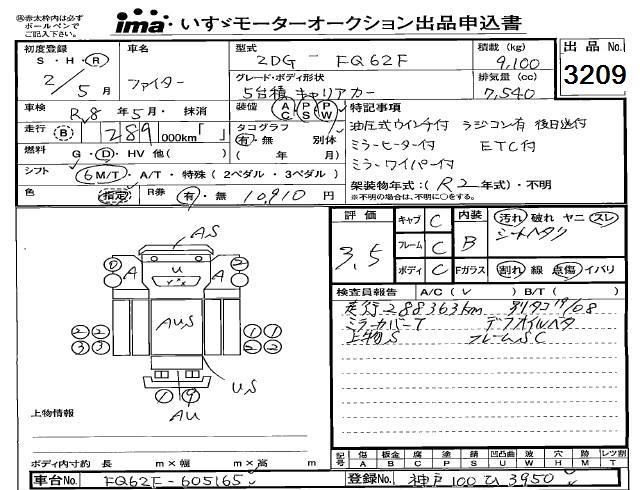 ㊟赤太枠内は必ず
ボールペンで
ご記入下さい。
ima いすゞモーターオークション出品申込書
初度登録
S・H・R
2/5月
車名
ファイター
型式
2DG－FQ62F
積載 (kg)
9,100
出品No.
3209
グレード・ボディ形状
5台積 キャリアカー
排気量 (cc)
7,540
車検
R8年5月・抹消
装備 AC PS PW
特記事項
走行 B 289,000km「 」
タコグラフ 別体
有・無 ( 年 月)
油圧式ウインチ付 ラジコン有 後日送付
ミラーヒーター付 ETC付
ミラーワイパー付
燃料
G・D・HV 他( )
シフト
6M/T・A/T・特殊 (2ペダル・3ペダル)
架装物年式:( R2年式)・不明
※不明の場合は、不明に○をする。
色
指定
R券
有・無 10,910 円
評価
3.5
キャブ C
フレーム C
ボディ C
内装 B
Fガラス
汚れ 破れ ヤニ スレ
シートヘタリ
割れ 線 点傷 イバリ
検査員報告 A/C ( V ) B/T ( )
走行288363km
ミラーカバーT デフオイルヘタ
上物S フレームSC
AS
A
U
A
AUS
US
AU
上物情報
ボディ内寸約 長 m×幅 m×高 m
記号 傷 板金 腐 塗 錆 凹凸曲 波 穴 跡 レツ割
A B C P S U W H M T
車台No. FQ62F-605165
登録No. 神戸100ひ3950